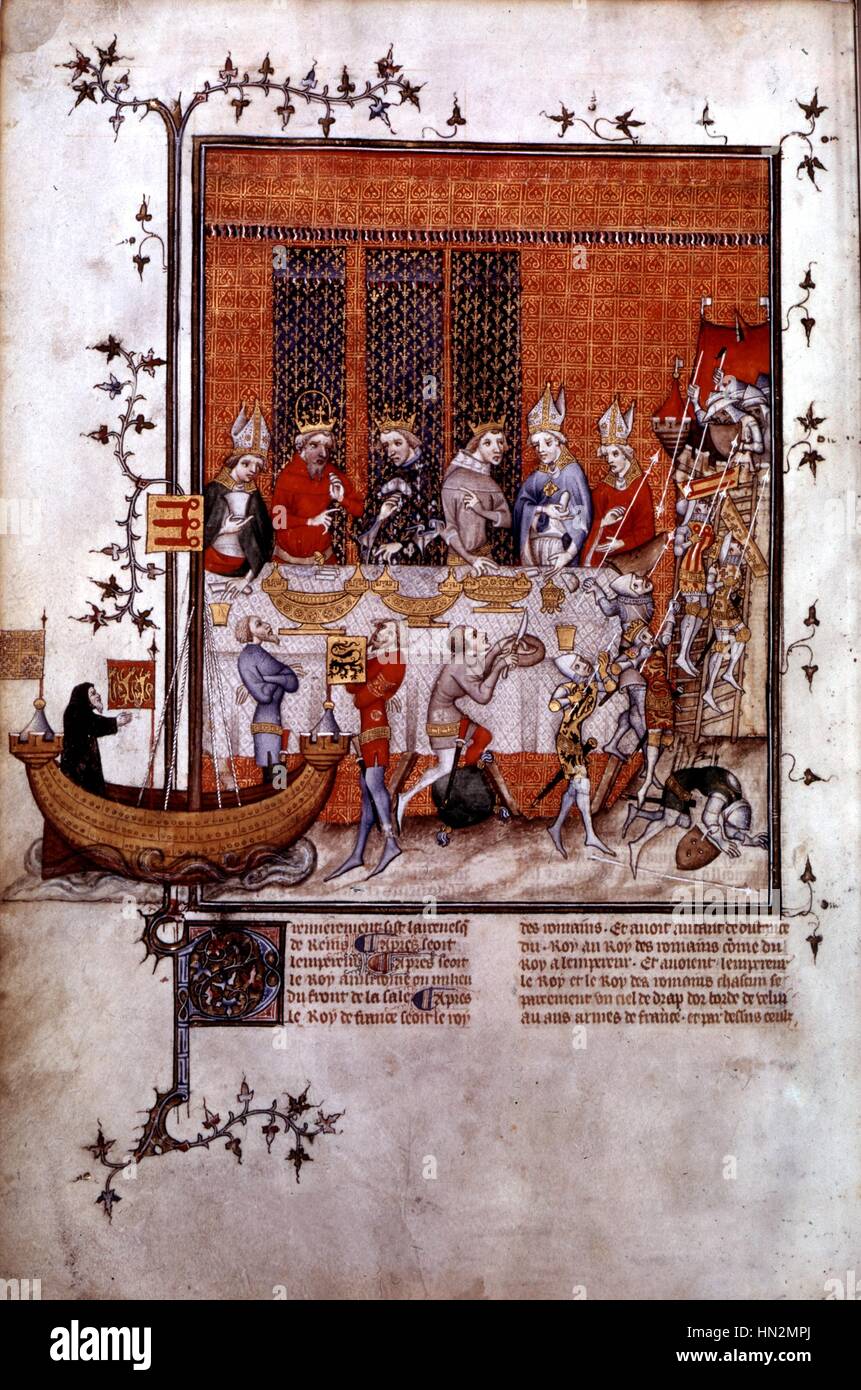 Premierement sist larcevesq
de Reins Apres seoit
lempereur Apres seoit
le Roy
du front de la sale Apres
le Roy de france seoit le roy
des romains. Et avoit autant de distance
du Roy au Roy des romains come du
Roy a lempereur. Et avoient lempereur
le Roy et le Roy des romains chascun se
parement un ciel de drap dor borde de veluy
au aus armes de france. et par dessus ceulx
alamy
Image ID: HN2MPJ
www.alamy.com